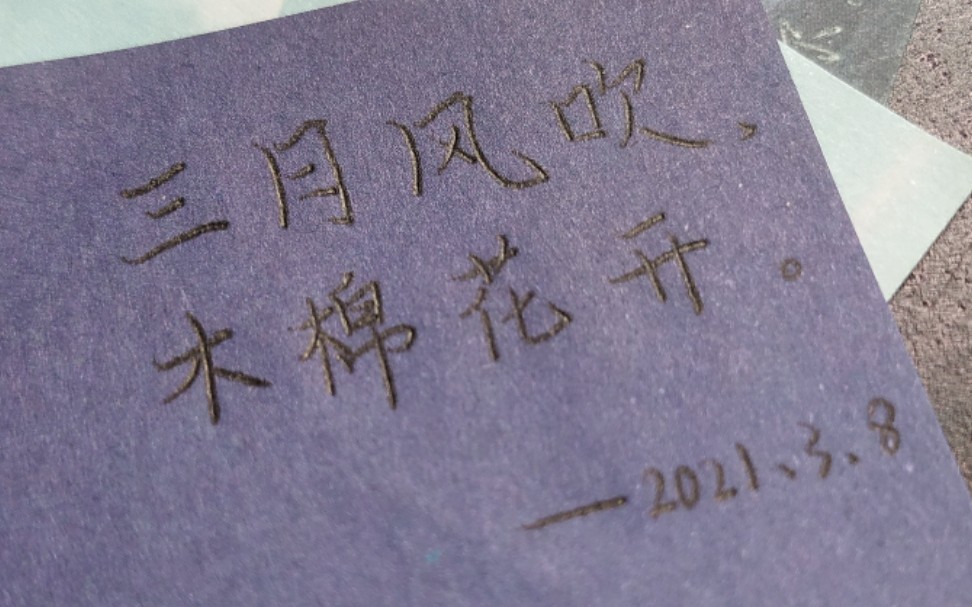 三月风吹、
木棉花开。
—2021、3、8